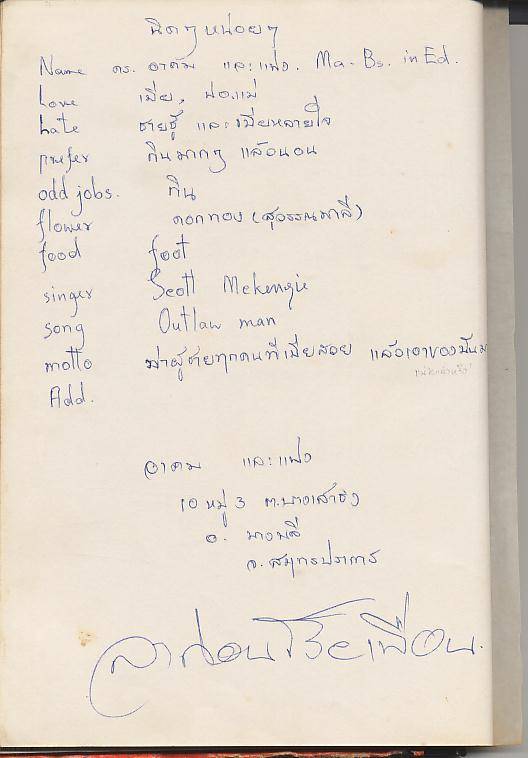 นิดๆ หน่อยๆ
Name ดร. อาคม และแฟง. Ma-Bs. in Ed.
Love เมีย, พ่อแม่
hate ชายชู้ และเมียหลายใจ
prefer กินมากๆ แล้วนอน
odd jobs. กิน
flower ดอกทอง (สุวรรณมาลี)
food foot
singer Scott Mckenzie
song Outlaw man
motto ฆ่าผู้ชายทุกคนที่เมียสวย แล้วเอาของมันม
Add.
อาคม และแฟง
10 หมู่ 3 ต.บางเสาธง
อ. บางพลี
จ.สมุทรปราการ
ลาก่อนโว้ยเพื่อน.